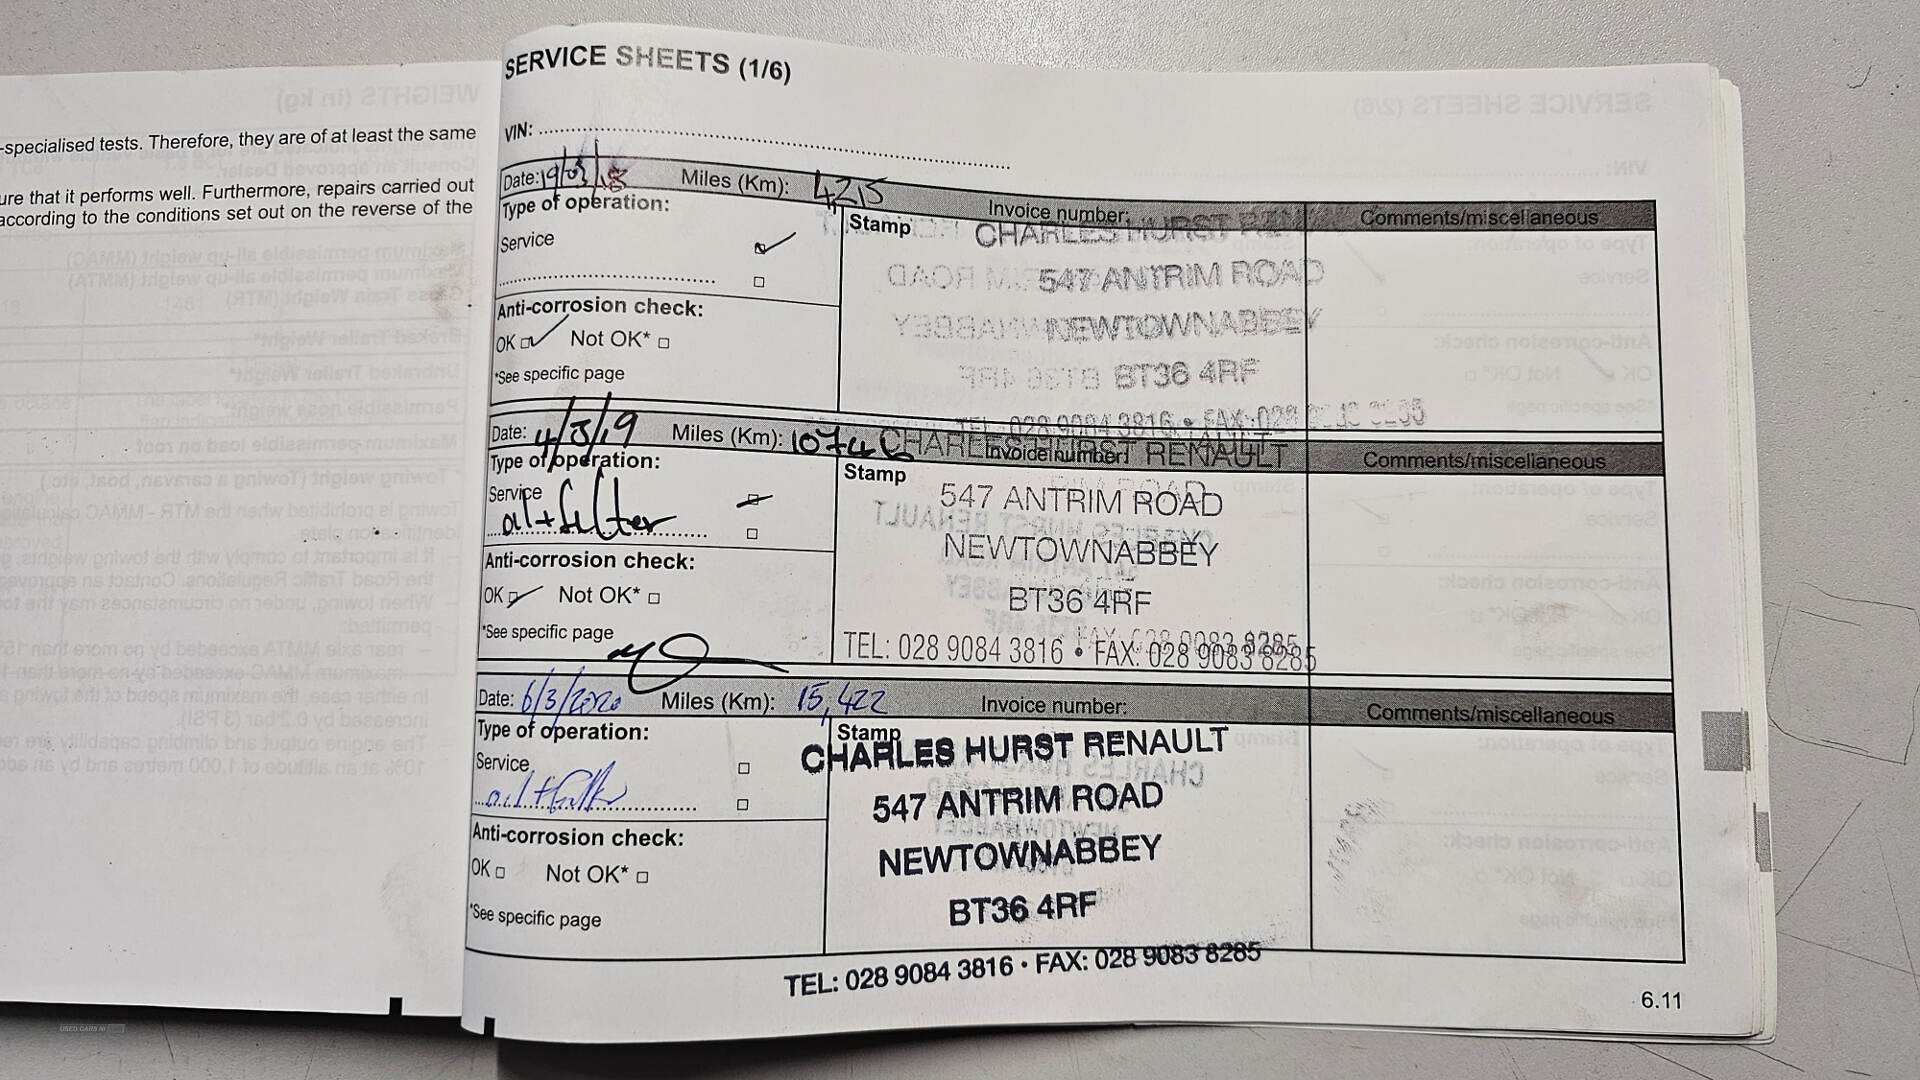 -specialised tests. Therefore, they are of at least the same
ure that it performs well. Furthermore, repairs carried out
according to the conditions set out on the reverse of the
SERVICE SHEETS (1/6)
VIN:
Date: 19/03/18 Miles (Km): 4,215 Invoice number: Comments/miscellaneous
Type of operation:
Service
Anti-corrosion check:
OK Not OK*
*See specific page
Stamp
CHARLES HURST REN
547 ANTRIM ROAD
NEWTOWNABBEY
BT36 4RF
TEL: 028 9084 3816 • FAX: 028
Date: 4/3/19 Miles (Km): 10746 Invoice number: Comments/miscellaneous
Type of operation:
Service
oil + filter
Anti-corrosion check:
OK Not OK*
*See specific page
Stamp
CHARLES HURST RENAULT
547 ANTRIM ROAD
NEWTOWNABBEY
BT36 4RF
TEL: 028 9084 3816 • FAX: 028 9083 8285
Date: 6/3/2020 Miles (Km): 15,422 Invoice number: Comments/miscellaneous
Type of operation:
Service
oil + filter
Anti-corrosion check:
OK Not OK*
*See specific page
Stamp
CHARLES HURST RENAULT
547 ANTRIM ROAD
NEWTOWNABBEY
BT36 4RF
TEL: 028 9084 3816 • FAX: 028 9083 8285
6.11
USED CARS NI